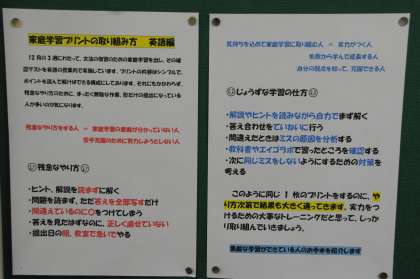 家庭学習プリントの取り組み方 英語編
12月の3週にわたって、文法の復習のための家庭学習を出し、その確
認テストを英語の授業内で実施しています。プリントの内容はシンプルで、
ポイントを読んで解けばできる構成にしております。それにもかかわらず、
残念なやり方のために、まったく無駄な作業、形だけの提出になっている
人が多いのが気になります。
残念なやり方をする人 = 家庭学習の意義が分かっていない人
苦手克服のために努力しようとしない人
残念なやり方
・ヒント、解説を読まずに解く
・問題を読まず、ただ答えを全部写すだけ
・間違えているのに〇をつけてしまう
・答えを見たはずなのに、正しく直せていない
・提出日の朝、教室で急いでやる
気持ちを込めて家庭学習に取り組む人 = 実力がつく人
失敗から学んで成長する人
自分の弱点を知って、克服できる人
じょうずな学習の仕方
・解説やヒントを読みながら自力でまず解く
・答え合わせをていねいに行う
・間違えたときはミスの原因を分析する
・教科書やエイゴラボで習ったところを確認する
・次に同じミスをしないようにするための対策を
考える
このように同じ1枚のプリントをするのに、や
り方次第で結果も大きく違ってきます。実力をつ
けるための大事なトレーニングだと思って、しっか
り取り組んでいきましょう。
素敵な学習ができている人のお手本を紹介します